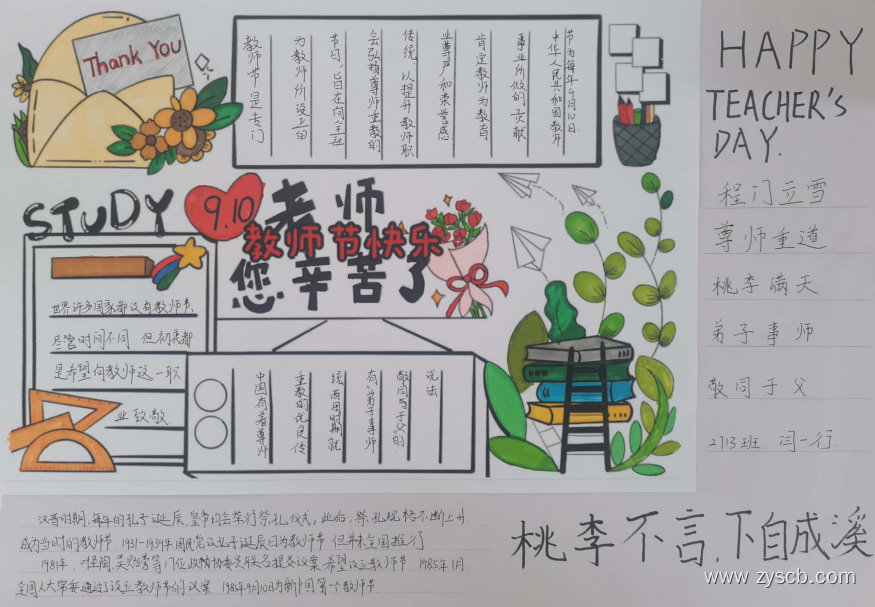 Thank You
教师节是专门
为教师所设立的
节日，旨在向全社
会弘扬尊师重教的
传统，以提升教师职
业尊严和荣誉感，
肯定教师为教育
事业所做的贡献
中华人民共和国教师
节为每年9月10日.
STUDY
9.10
老师
教师节快乐
您辛苦了
世界许多国家都设有教师节,
尽管时间不同,但初衷都
是希望向教师这一职
业致敬.
中国有着尊师
重教的优良传
统,西周时期就
有"弟子事师
敬同于父"的
说法
HAPPY
TEACHER'S
DAY.
程门立雪
尊师重道
桃李满天
弟子事师
敬同于父
2713班. 闫一行.
汉晋时期,每年的孔子诞辰,皇帝均会举行祭孔仪式。此后,祭孔规格不断上升
成为当时的教师节. 1931-1939年国民党设孔子诞辰日为教师节 但并未全国推行
1981年, 叶圣陶,吴贻芳等 门位政协委员联名提交议案希望设立教师节 1985年1月
全国人大常委通过了设立教师节的议案. 1985年9月10日为新中国第一个教师节
桃李不言,下自成溪
www.zyscb.com